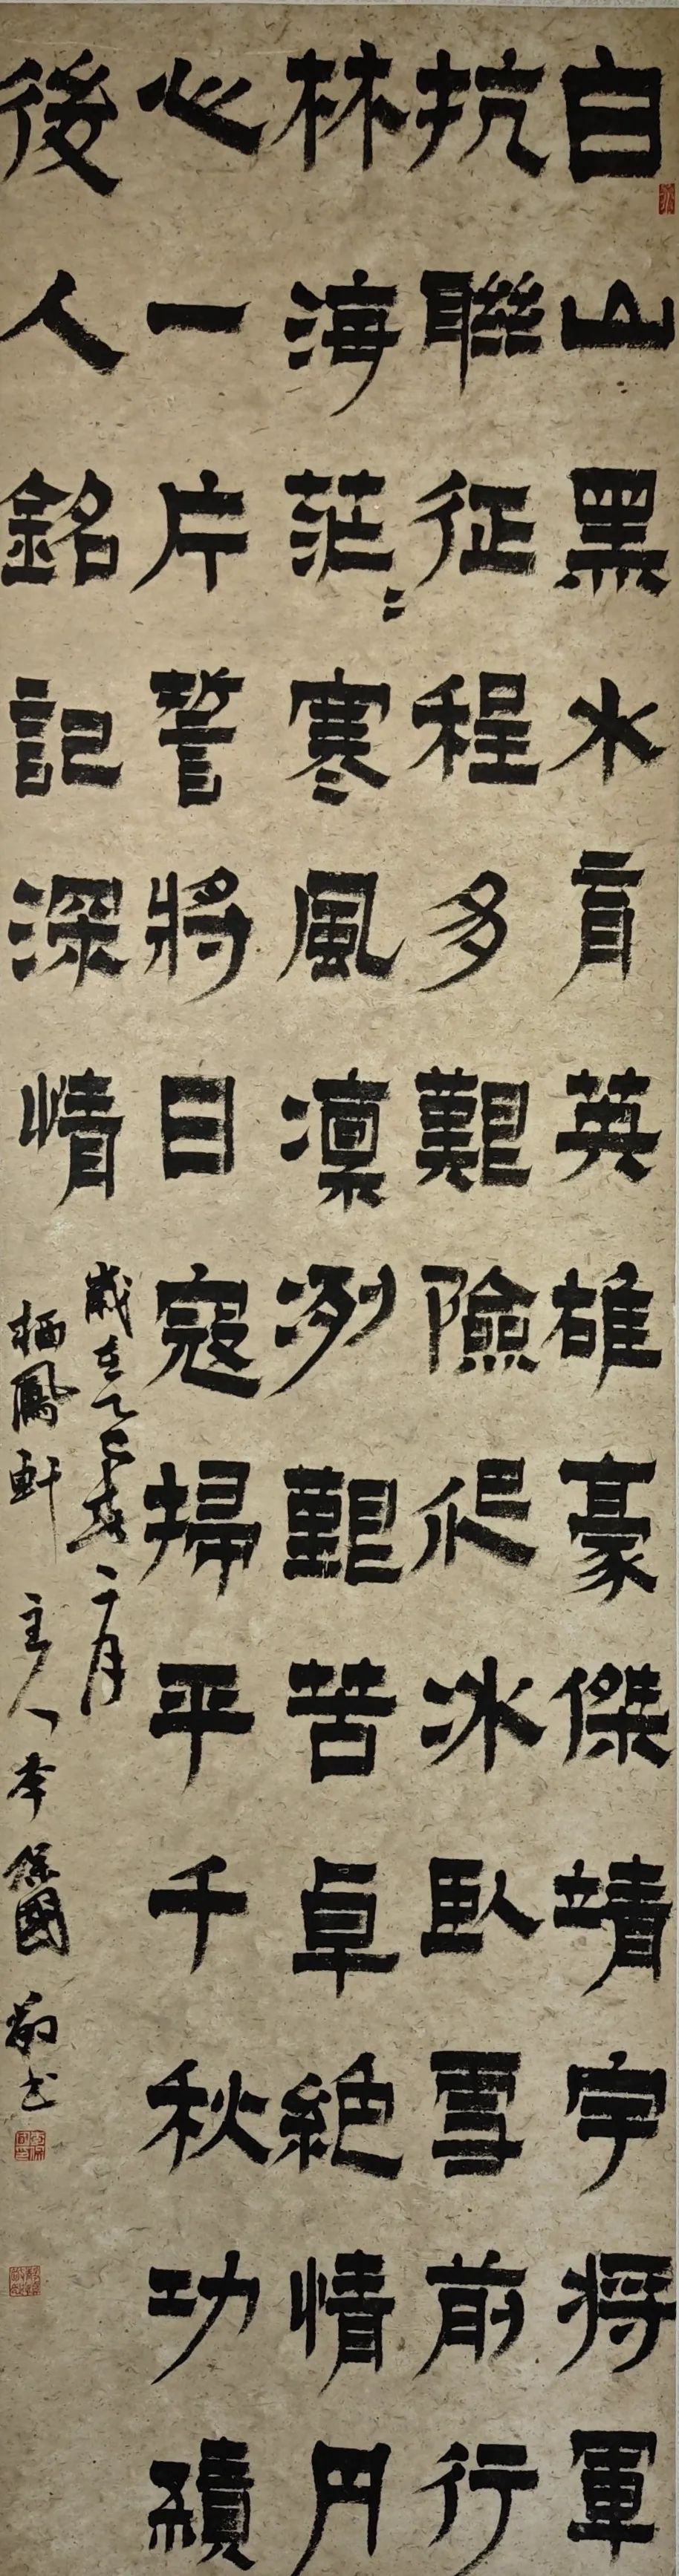 白山黑水育英雄豪傑靖宇将軍
抗聯征程多艱險爬冰臥雪前行
林海茫〻寒風凛冽艱苦卓絶情丹
心一片誓將日寇掃平千秋功績
後人銘記深情
歲在乙巳年二月
栖鳳軒主人李保國敬书